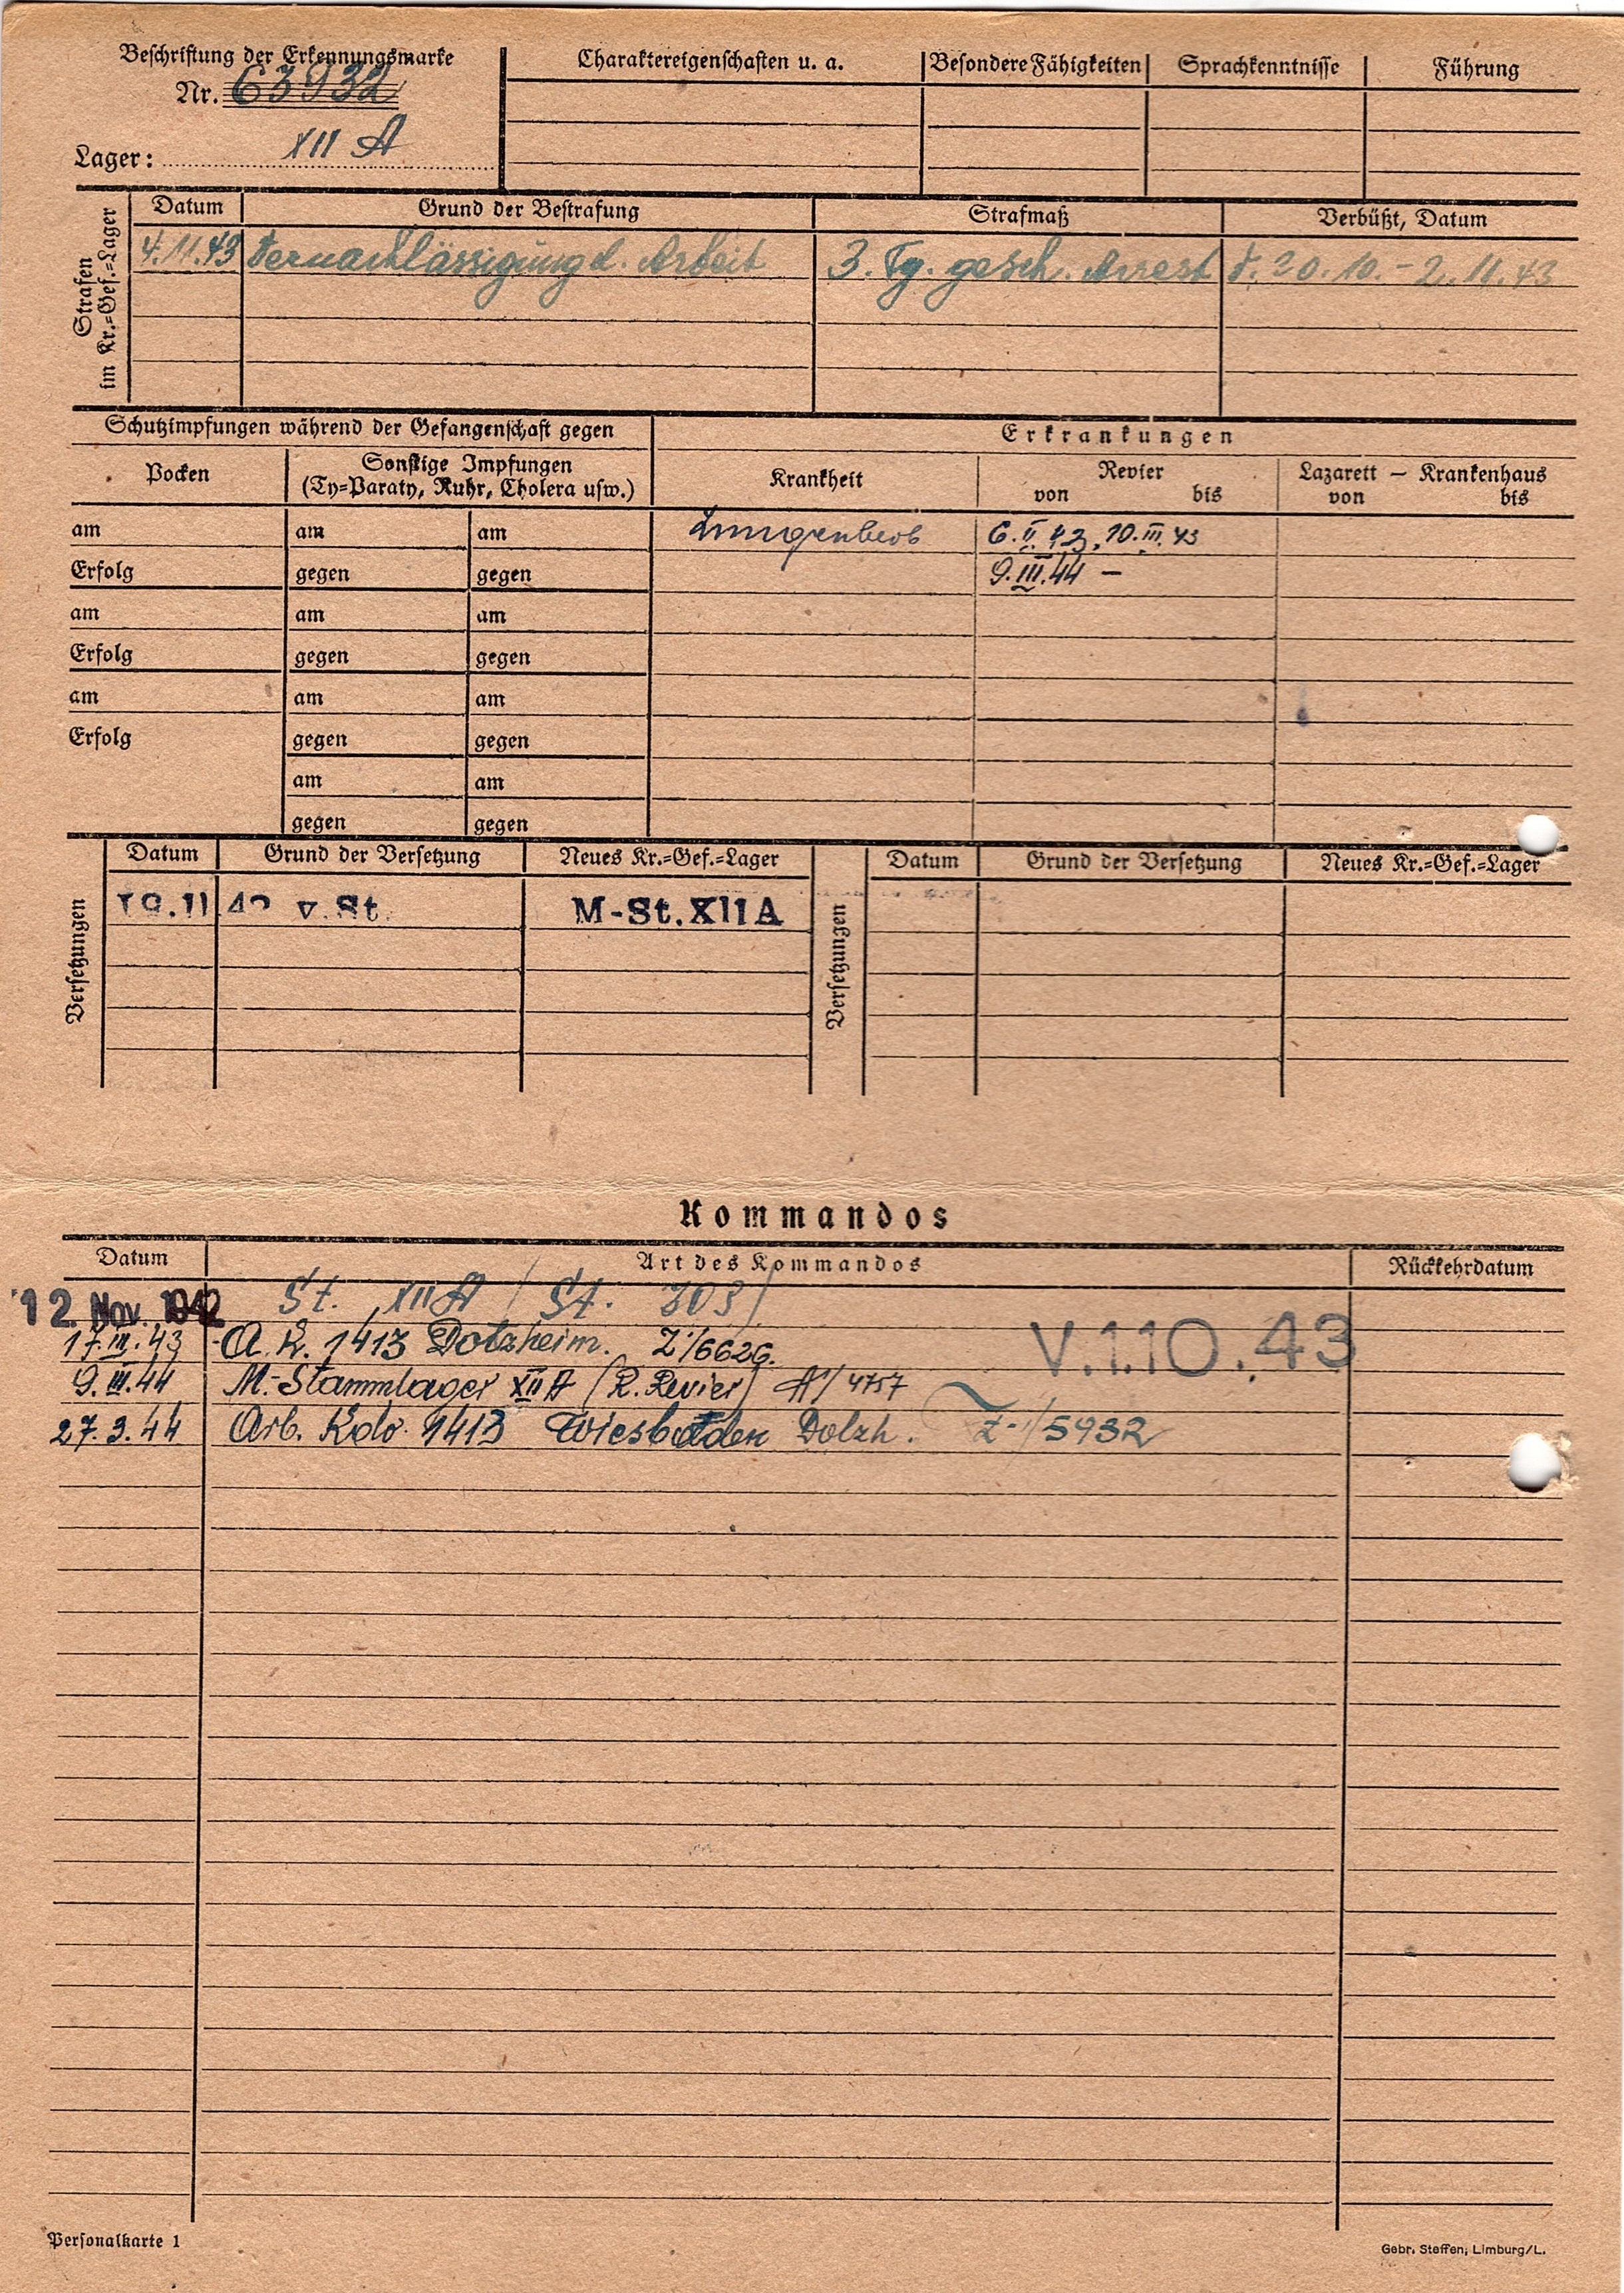 Beschriftung der Erkennungsmarke
Nr. 63932
Lager: XII A
Charaktereigenschaften u. a.
Besondere Fähigkeiten
Sprachkenntnisse
Führung
Strafen im Kr.=Gef.=Lager
Datum Grund der Bestrafung Strafmaß Verbüßt, Datum
4.11.43 Vernachlässigung d. Arbeit 3. Tg. gesch. Arrest 20.10.-2.11.43
Schutzimpfungen während der Gefangenschaft gegen
Erkrankungen
Pocken
Sonstige Impfungen
(Ty=Paraty, Ruhr, Cholera usw.)
Krankheit
Revier
von bis
Lazarett — Krankenhaus
von bis
am am am 6.II.43, 10.III.43
Erfolg gegen gegen 9.III.44 –
am am am
Erfolg gegen gegen
am am am
Erfolg gegen gegen
am am
gegen gegen
Versetzungen
Datum Grund der Versetzung Neues Kr.=Gef.=Lager
v. St. M-St. XII A
Versetzungen
Datum Grund der Versetzung Neues Kr.=Gef.=Lager
Kommandos
Datum Art des Kommandos Rückkehrdatum
12. Nov. 1942 St. XII A / St.
17.III.43 A.K. 1413 Dotzheim. Z/6626.
V.1.10.43
9.III.44 M.-Stammlager XII A (R. Revier) A/4757
27.3.44 Arb. Kdo. 1413 Wiesbaden Dolzh. Z-/5932
Personalkarte 1
Gebr. Steffen, Limburg/L.